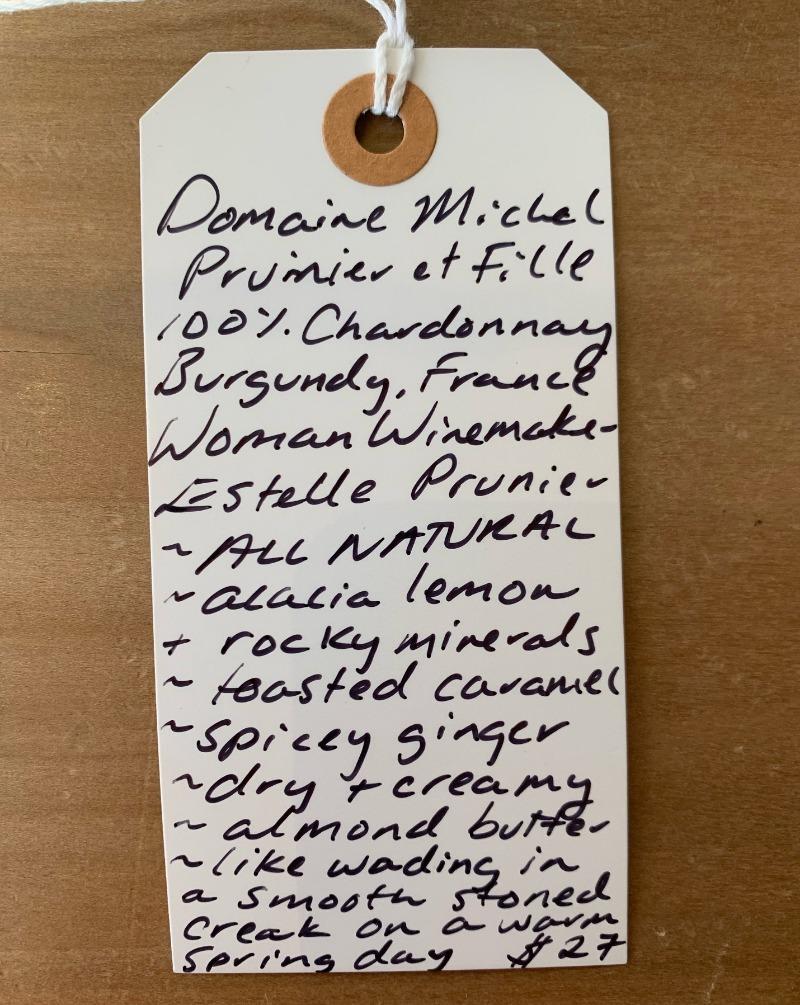 Domaine Michel
Prunier et Fille
100% Chardonnay
Burgundy, France
Woman Winemaker
Estelle Prunier
~ ALL NATURAL
~ acacia lemon
+ rocky minerals
~ toasted caramel
~ spicey ginger
~ dry + creamy
~ almond butter
~ like wading in
a smooth stoned
creak on a warm
spring day $27